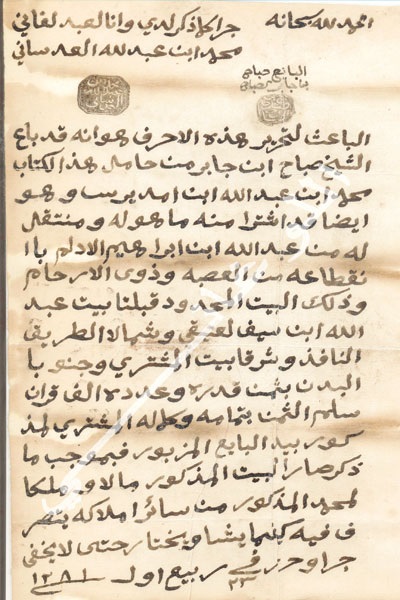 الحمد لله سبحانه
جرا كما ذكر لدي وانا العبد لفاني
محمد ابن عبدالله العدساني
البايع صباح
ابن جابر الصباح
الباعث لتحرير هذه الاحرف هو انه قد باع
الشيخ صباح ابن جابر من حامل هذا الكتاب
محمد ابن عبدالله ابن امديرس وهو
ايضا قد اشترا منه ما هو له ومنتقل
له من عبدالله ابن ابراهيم الادلم باا
نقطاعه من العصبه وذوي الارحام
وذلك البيت المحدود قبلتا بيت عبد
الله ابن سيف لعتيقي وشمالا الطريق
النافذ وشرقا بيت المشتري وجنوبا
البدن بثمن قدره وعدده الف قران
سلم الثمن بتمامه وكماله المشتري لمذ
كور بيد البايع المزبور فبموجب ما
ذكر صار البيت المذكور مالا وملكا
لمحمد المذكور من سائر املاكه يتصر
ف فيه كيفما يشا ويختار حتى لا يخفى
جرا وحرر في ٢٣ ربيع اول ١٢٨١